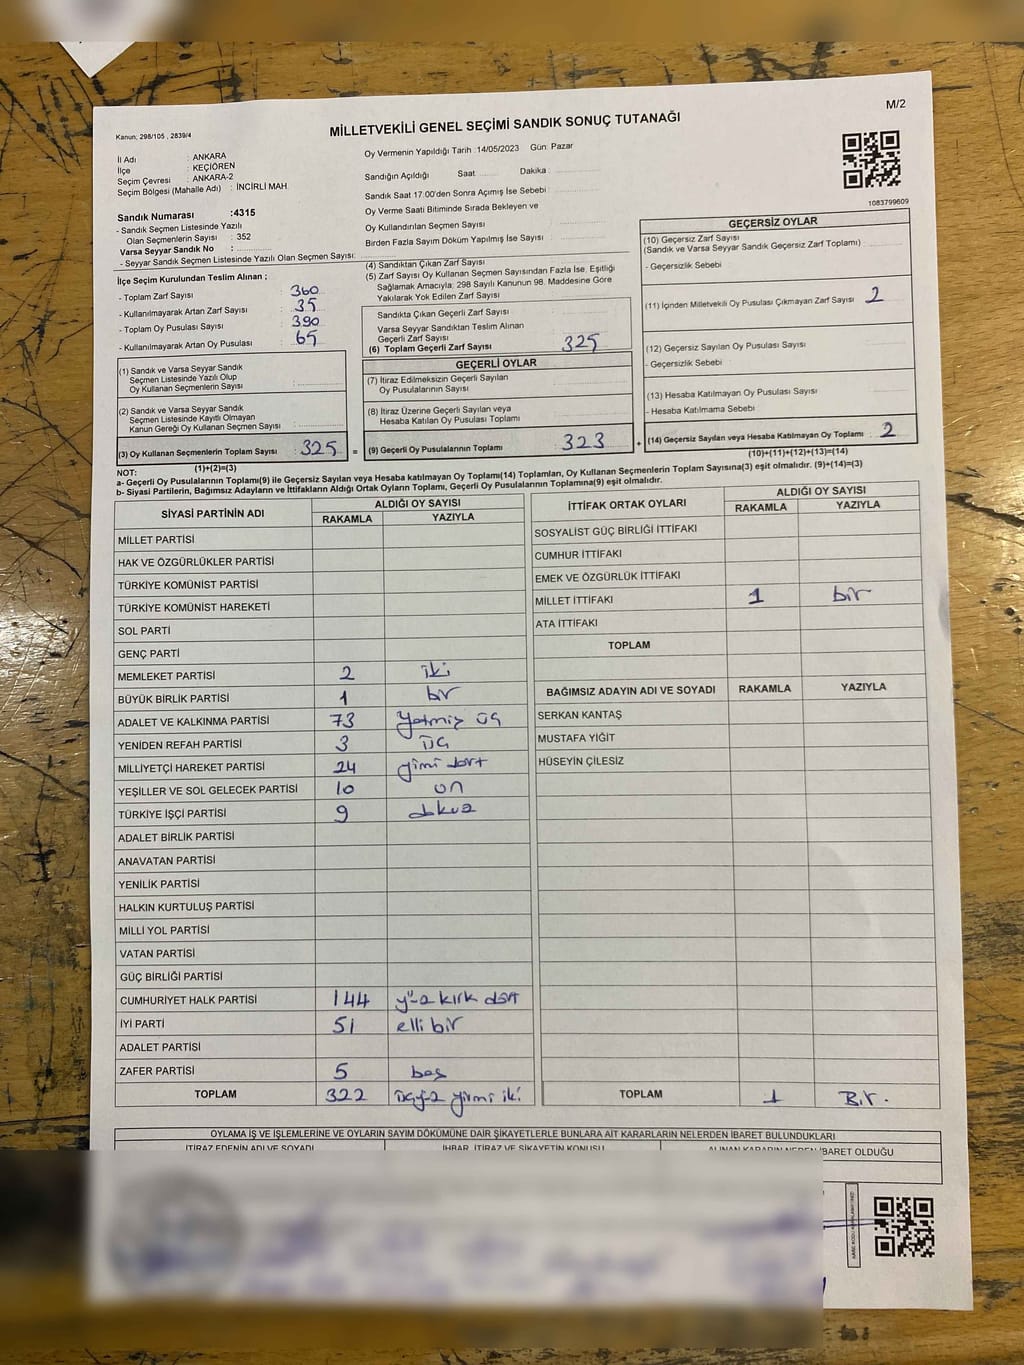 M/2
Kanun; 298/105 , 2839/4
MİLLETVEKİLİ GENEL SEÇİMİ SANDIK SONUÇ TUTANAĞI
İl Adı : ANKARA
İlçe : KEÇİÖREN
Seçim Çevresi : ANKARA-2
Seçim Bölgesi (Mahalle Adı) : İNCİRLİ MAH.
Sandık Numarası :4315
- Sandık Seçmen Listesinde Yazılı
Olan Seçmenlerin Sayısı : 352
Varsa Seyyar Sandık No :
- Seyyar Sandık Seçmen Listesinde Yazılı Olan Seçmen Sayısı:
Oy Vermenin Yapıldığı Tarih :14/05/2023 Gün: Pazar
Sandığın Açıldığı Saat Dakika :
Sandık Saat 17:00'den Sonra Açımış İse Sebebi :
Oy Verme Saati Bitiminde Sırada Bekleyen ve
Oy Kullandırılan Seçmen Sayısı :
Birden Fazla Sayım Döküm Yapılmış İse Sayısı :
1083799609
İlçe Seçim Kurulundan Teslim Alınan ;
- Toplam Zarf Sayısı : 360
- Kullanılmayarak Artan Zarf Sayısı : 35
- Toplam Oy Pusulası Sayısı : 390
- Kullanılmayarak Artan Oy Pusulası : 65
(1) Sandık ve Varsa Seyyar Sandık
Seçmen Listesinde Yazılı Olup
Oy Kullanan Seçmenlerin Sayısı :
(2) Sandık ve Varsa Seyyar Sandık
Seçmen Listesinde Kayıtlı Olmayan
Kanun Gereği Oy Kullanan Seçmen Sayısı :
(3) Oy Kullanan Seçmenlerin Toplam Sayısı : 325
(1)+(2)=(3)
(4) Sandıktan Çıkan Zarf Sayısı
(5) Zarf Sayısı Oy Kullanan Seçmen Sayısından Fazla İse, Eşitliği
Sağlamak Amacıyla; 298 Sayılı Kanunun 98. Maddesine Göre
Yakılarak Yok Edilen Zarf Sayısı
Sandıkta Çıkan Geçerli Zarf Sayısı
Varsa Seyyar Sandıktan Teslim Alınan
Geçerli Zarf Sayısı
(6) Toplam Geçerli Zarf Sayısı 325
GEÇERLİ OYLAR
(7) İtiraz Edilmeksizin Geçerli Sayılan
Oy Pusulalarının Sayısı
(8) İtiraz Üzerine Geçerli Sayılan veya
Hesaba Katılan Oy Pusulası Toplamı
= (9) Geçerli Oy Pusulalarının Toplamı 323 +
GEÇERSİZ OYLAR
(10) Geçersiz Zarf Sayısı
(Sandık ve Varsa Seyyar Sandık Geçersiz Zarf Toplamı) :
- Geçersizlik Sebebi :
(11) İçinden Milletvekili Oy Pusulası Çıkmayan Zarf Sayısı : 2
(12) Geçersiz Sayılan Oy Pusulası Sayısı :
- Geçersizlik Sebebi :
(13) Hesaba Katılmayan Oy Pusulası Sayısı :
- Hesaba Katılmama Sebebi :
(14) Geçersiz Sayılan veya Hesaba Katılmayan Oy Toplamı : 2
(10)+(11)+(12)+(13)=(14)
NOT:
a- Geçerli Oy Pusulalarının Toplamı(9) ile Geçersiz Sayılan veya Hesaba katılmayan Oy Toplamı(14) Toplamları, Oy Kullanan Seçmenlerin Toplam Sayısına(3) eşit olmalıdır. (9)+(14)=(3)
b- Siyasi Partilerin, Bağımsız Adayların ve İttifakların Aldığı Oyların Toplamı, Geçerli Oy Pusulalarının Toplamına(9) eşit olmalıdır.
SİYASİ PARTİNİN ADI ALDIĞI OY SAYISI
RAKAMLA YAZIYLA
MİLLET PARTİSİ
HAK VE ÖZGÜRLÜKLER PARTİSİ
TÜRKİYE KOMÜNİST PARTİSİ
TÜRKİYE KOMÜNİST HAREKETİ
SOL PARTİ
GENÇ PARTİ
MEMLEKET PARTİSİ 2 iki
BÜYÜK BİRLİK PARTİSİ 1 bir
ADALET VE KALKINMA PARTİSİ 73 Yetmiş üç
YENİDEN REFAH PARTİSİ 3 üç
MİLLİYETÇİ HAREKET PARTİSİ 24 yirmi dört
YEŞİLLER VE SOL GELECEK PARTİSİ 10 on
TÜRKİYE İŞÇİ PARTİSİ 9 dokuz
ADALET BİRLİK PARTİSİ
ANAVATAN PARTİSİ
YENİLİK PARTİSİ
HALKIN KURTULUŞ PARTİSİ
MİLLİ YOL PARTİSİ
VATAN PARTİSİ
GÜÇ BİRLİĞİ PARTİSİ
CUMHURİYET HALK PARTİSİ 144 yüz kırk dört
İYİ PARTİ 51 elli bir
ADALET PARTİSİ
ZAFER PARTİSİ 5 beş
TOPLAM 322 üçyüz yirmi iki
İTTİFAK ORTAK OYLARI ALDIĞI OY SAYISI
RAKAMLA YAZIYLA
SOSYALİST GÜÇ BİRLİĞİ İTTİFAKI
CUMHUR İTTİFAKI
EMEK VE ÖZGÜRLÜK İTTİFAKI
MİLLET İTTİFAKI 1 bir
ATA İTTİFAKI
TOPLAM
BAĞIMSIZ ADAYIN ADI VE SOYADI RAKAMLA YAZIYLA
SERKAN KANTAŞ
MUSTAFA YİĞİT
HÜSEYİN ÇİLESİZ
TOPLAM 1 Bir.
OYLAMA İŞ VE İŞLEMLERİNE VE OYLARIN SAYIM DÖKÜMÜNE DAİR ŞİKAYETLERLE BUNLARA AİT KARARLARIN NELERDEN İBARET BULUNDUKLARI
İTİRAZ EDENİN ADI VE SOYADI İHBAR, İTİRAZ VE ŞİKAYETİN KONUSU ALINAN KARARIN NEDEN İBARET OLDUĞU